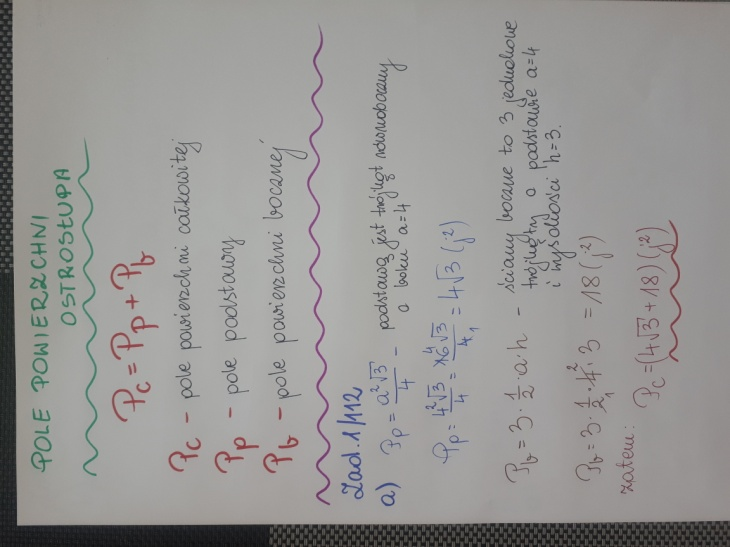 POLE POWIERZCHNI
OSTROSŁUPA
Pc = Pp + Pb
Pc - pole powierzchni całkowitej
Pp - pole podstawy
Pb - pole powierzchni bocznej
Zad. 1/112
a) Pp = a²√3/4 - podstawą jest trójkąt równoboczny
o boku a=4
Pp = 4²√3/4 = 16√3/4 = 4√3 (j²)
Pb = 3 · 1/2 · a · h - ściany boczne to 3 jednakowe
trójkąty o podstawie a=4
i wysokości h=3.
Pb = 3 · 1/2 · 4 · 3 = 18 (j²)
zatem: Pc = (4√3 + 18) (j²)